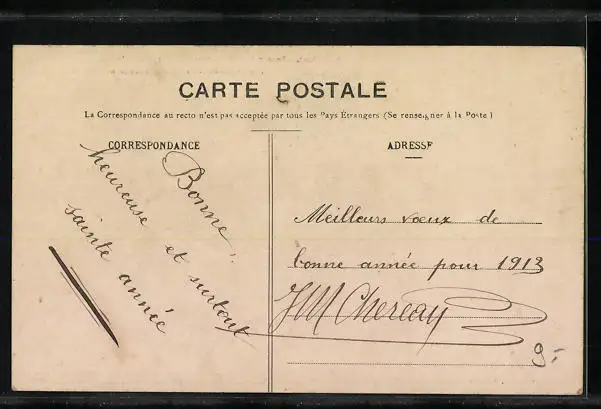 CARTE POSTALE
La Correspondance au recto n'est pas acceptée par tous les Pays Étrangers (Se renseigner à la Poste)
CORRESPONDANCE
Bonne,
heureuse et surtout
sainte année
ADRESSE
Meilleurs voeux de
bonne année pour 1913
JM Chereau
9.-